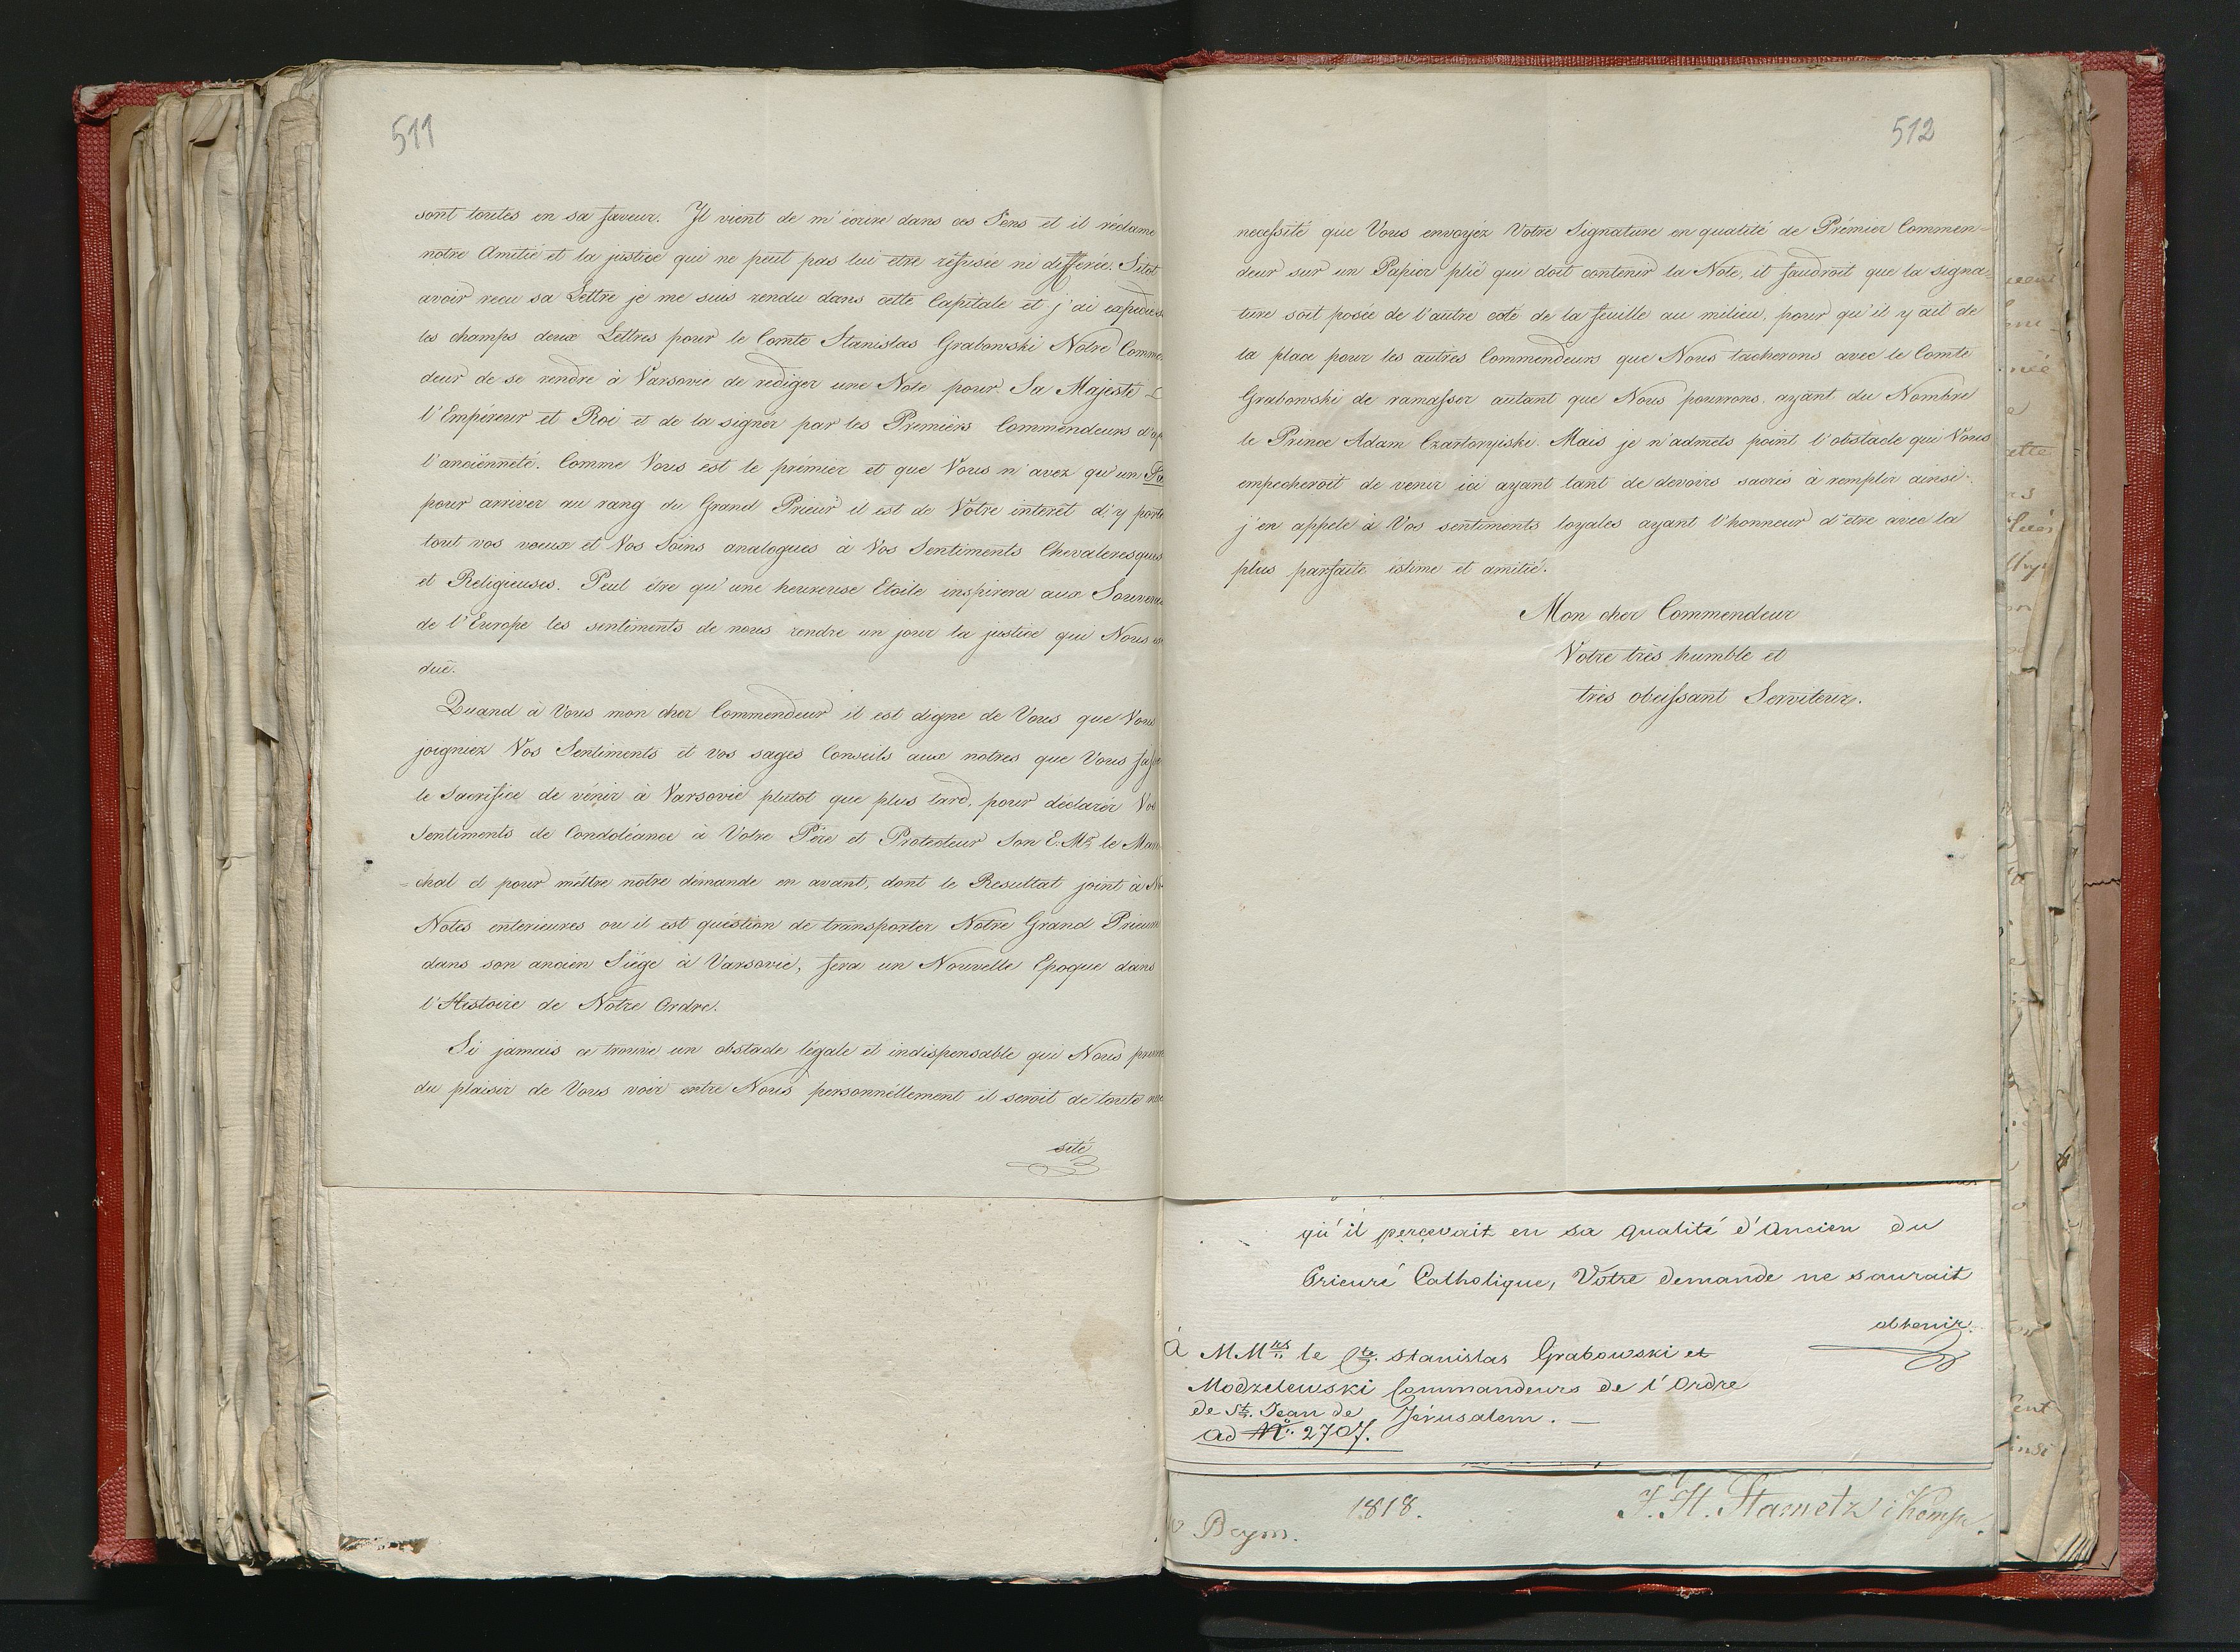 511
sont toutes en sa faveur. Il vient de m'écrire dans ces Sens et il réclame
notre Amitié et la justice qui ne peut pas lui etre réfusée ni differée. Sitot
avoir recu sa Lettre je me suis rendu dans cette Capitale et j'ai
les champs deux Lettres pour le Comte Stanislas Grabowski Notre Comm
deur de se rendre à Varsovie de rediger une Note pour Sa Majesté
l'Empéreur et Roi et de la signér par les Premièrs Commendeurs d'
l'anciènneté. Comme Vous est le prémier et que Vous n'avez qu'un
pour arriver au rang du Grand Prieur il est de Votre interet d'y porte
tout vos voeux et Vos Soins analogues à Vos Sentiments Chevaleresques
et Religieuses. Peut être qu'une heureuse Etoile inspirera aux Souver
de l'Europe les sentiments de nous rendre un jour la justice qui Nous
duë.
Quand à Vous mon cher Commendeur il est digne de Vous que Vous
joigniez Vos Sentiments et vos sages Conseils aux notres que Vous
le Sacrifice de vénir à Varsovie plutot que plus tard, pour déclarér Vos
Sentiments de Condoléance à Votre Pére et Protecteur Son E. Mr le Mar
chal et pour méttre notre démande en avant, dont le Resultat joint à
Notes enterieures ou il est quéstion de transporter Notre Grand Prieur
dans son ancien Siége à Varsovie, fera un Nouvelle Epoque dans
l'Histoire de Notre Ordre.
Si jamais ce trouve un obstacle légale et indispensable qui Nous
du plaisir de Vous voir entre Nous personnéllement il seroit de toute
sité
512
necessité que Vous envoyéz Votre Signature en qualité de Prémier Commen-
deur sur un Papier plié qui doit contenir la Note, il faudroit que la signa-
ture soit posée de l'autre coté de la feuille au milieu, pour qu'il y ait de
la place pour les autres Commendeurs que Nous tacherons avec le Comte
Grabowski de ramasser autant que Nous pourrons, ayant du Nombre
le Prince Adam Czartoryiski. Mais je n'admets point l'obstacle qui Vous
empecheroit de venir ici ayant tant de devoirs sacrés à remplir ainsi
j'en appele à Vos sentiments loyales ayant l'honneur d'etre avec la
plus parfaite éstime et amitié.
Mon cher Commendeur
Votre très humble et
très obeissant Serviteur.
qu'il percevait en sa qualité d'Ancien du
Prieuré Catholique, Votre demande ne saurait
obtenir
À MMrs le Cte. Stanislas Grabowski et
Modzelewski Commandeurs de l'Ordre
de St. Jean de Jérusalem. —
ad No. 2707.
1818.